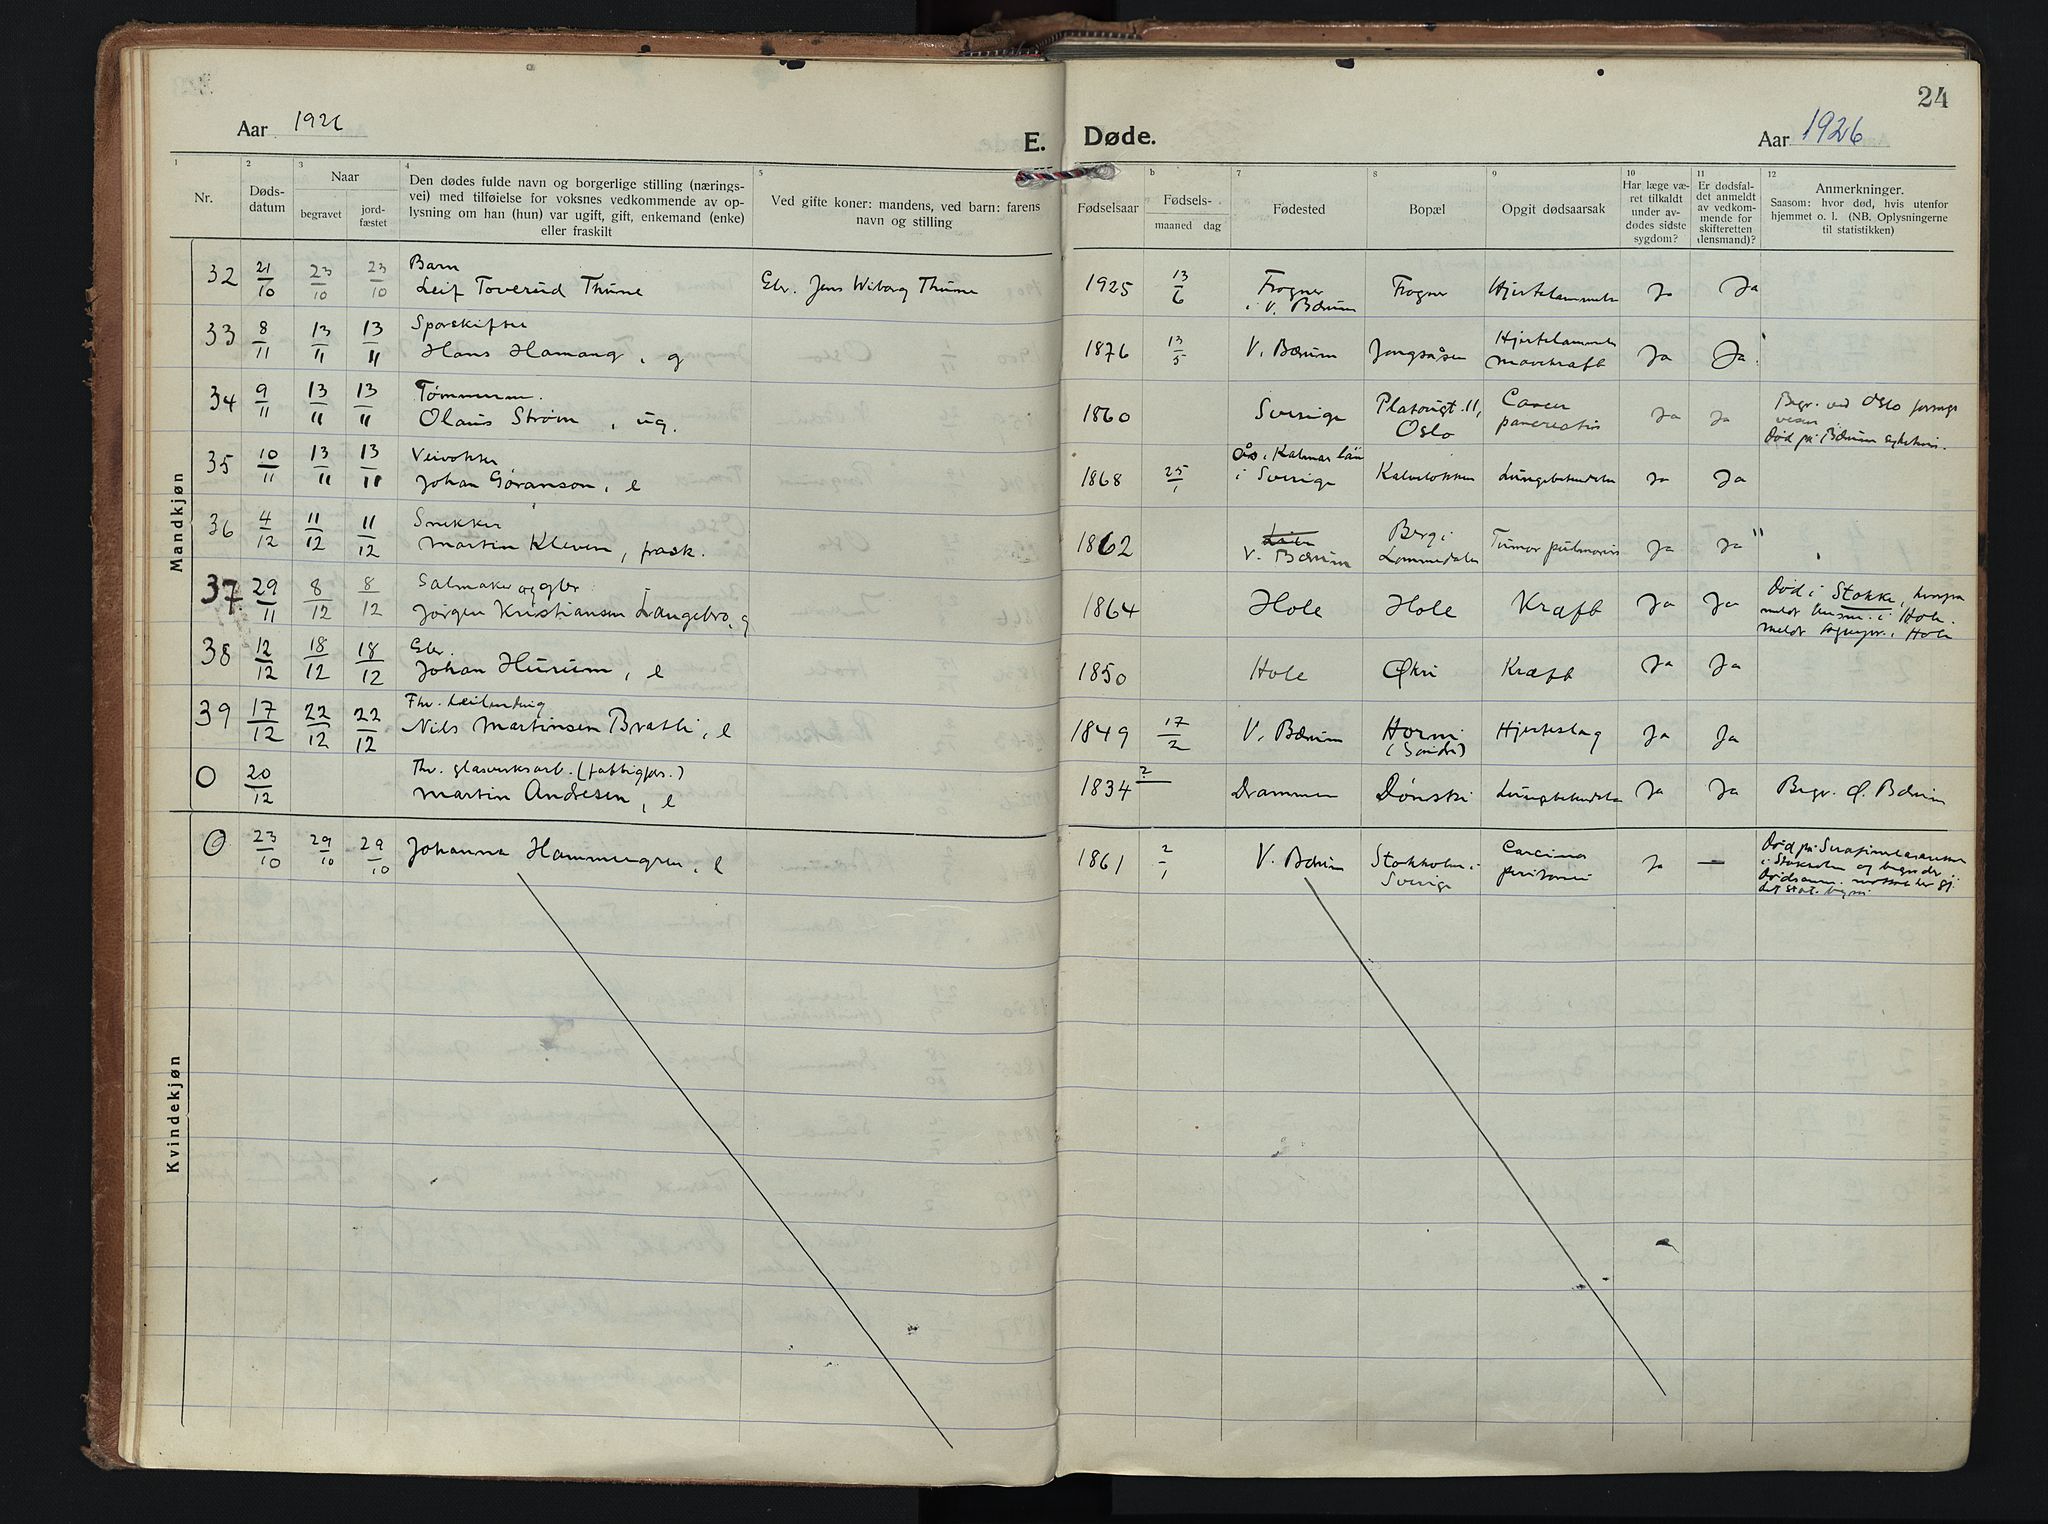 24
Aar 1926
E. Døde.
Aar 1926
1 2 3 4 5 b 7 8 9 10 11 12
Nr.
Døds-
datum
Naar
begravet
jord-
fæstet
Den dødes fulde navn og borgerlige stilling (nærings-
vei) med tilføielse for voksnes vedkommende av op-
lysning om han (hun) var ugift, gift, enkemand (enke)
eller fraskilt
Ved gifte koner: mandens, ved barn: farens
navn og stilling
Fødselsaar
Fødsels-
maaned dag
Fødested
Bopæl
Opgit dødsaarsak
Har læge væ-
ret tilkaldt
under av-
dødes sidste
sygdom?
Er dødsfal-
det anmeldt
av vedkom-
mende for
skifteretten
(lensmand)?
Anmerkninger.
Saasom: hvor død, hvis utenfor
hjemmet o. l. (NB. Oplysningerne
til statistikken)
Mandkjøn
32 21/10 23/10 23/10 Barn
Leif Toverud Thune Gbr. Jens Wiborg Thune 1925 13/6 Frogner
i V. Bærum Frogner Hjertelammelse Ja Ja
33 8/11 13/11 13/11 Sporskifter
Hans Hamang, g 1876 13/5 V. Bærum Jongsåsen Hjertelammelse
mavekræft Ja Ja
34 9/11 13/11 13/11 Tømmerm.
Olaus Strøm, ug. 1860 Sverige Platougt. 11,
Oslo Cancer
pancreatis Ja Ja Begr. ved Oslo forsorgs
vesen.
Død på Bærum sykehus.
35 10/11 13/11 13/11 Veivokter
Johan Gøranson, e 1868 25/1 Ås i Kalmar län
i Sverige Kalveløkken Lungebetendelse Ja Ja
36 4/12 11/12 11/12 Snekker
Martin Kleven, frask. 1862 V. Bærum Berg i
Lommedalen Tumor pulmonis Ja Ja "
37 29/11 8/12 8/12 Salmaker og gbr
Jørgen Kristiansen Langebro, g 1864 Hole Hole Kræft Ja Ja Død i Stokke,
meldt lensm. i Hole.
meldt sognepr. i Hole
38 12/12 18/12 18/12 Gbr.
Johan Hurum, e 1850 Hole Økri Kræft Ja Ja
39 17/12 22/12 22/12 Fhv.
Nils Martinsen Bratli, e 1849 17/2 V. Bærum Horni
(Søndre) Hjerteslag Ja Ja
0 20/12 Fhv. glasverksarb. (fattigfors.)
Martin Andresen, e 1834 ? Drammen Dønski Lungebetendelse Ja Ja Begr. Ø. Bærum
Kvindekjøn
0 23/10 29/10 29/10 Johanna Hammergren, e 1861 2/1 V. Bærum Stokholm i
Sverige Carcinom
peritonei Ja — Død på Serafimerlasarettet
i Stokholm og begr. der.
Dødsanm. mottat her gj.
det stat. byrå.